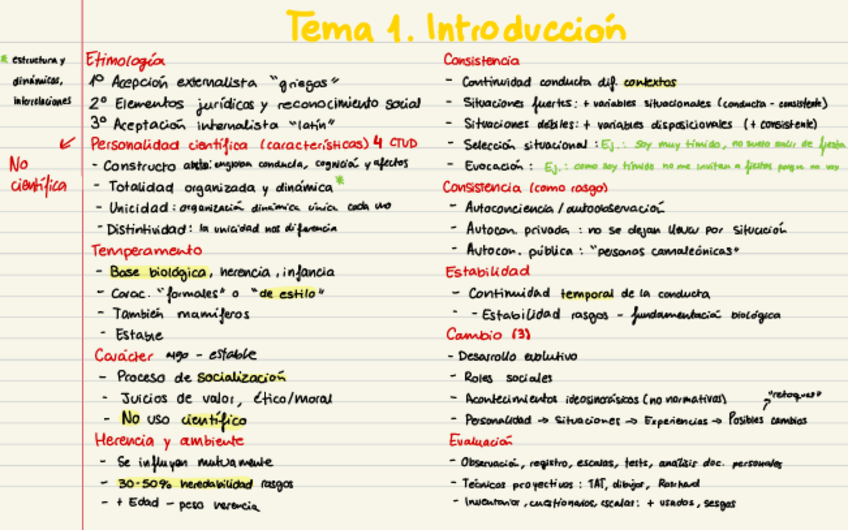 Tema 1. Introducción
* estructura y
dinámicas,
interrelaciones
No
científica
Etimología
1º Acepción externalista "griegos"
2º Elementos jurídicos y reconocimiento social
3º Aceptación internalista "latín"
Personalidad científica (características) 4 CTUD
- Constructo engloban conducta, cognición y afectos
- Totalidad organizada y dinámica *
- Unicidad: organización dinámica única cada uno
- Distintividad: la unicidad nos diferencia
Temperamento
- Base biológica, herencia, infancia
- Carac. "formales" o "de estilo"
- También mamíferos
- Estable
Carácter algo - estable
- Proceso de socialización
- Juicios de valor, ético/moral
- No uso científico
Herencia y ambiente
- Se influyen mutuamente
- 30-50% heredabilidad rasgos
- + Edad - peso herencia
Consistencia
- Continuidad conducta dif. contextos
- Situaciones fuertes: + variables situacionales (conducta - consistente)
- Situaciones débiles: + variables disposicionales (+ consistente)
- Selección situacional: Ej.: soy muy tímido, no suelo salir de fiesta
- Evocación: Ej.: como soy tímido no me invitan a fiestas porque no voy
Consistencia (como rasgo)
- Autoconciencia / autoobservación
- Autocon. privada: no se dejan llevar por situación
- Autocon. pública: "personas camaleónicas"
Estabilidad
- Continuidad temporal de la conducta
- - Estabilidad rasgos - fundamentación biológica
Cambio (3)
- Desarrollo evolutivo
- Roles sociales
- Acontecimientos ideosincrásicos (no normativas) "retoques"
- Personalidad → Situaciones → Experiencias → Posibles cambios
Evaluación
- Observación, registro, escalas, tests, análisis doc. personales
- Técnicas proyectivos: TAT, dibujos,
- Inventarios, cuestionarios, escalas: + usados, sesgos